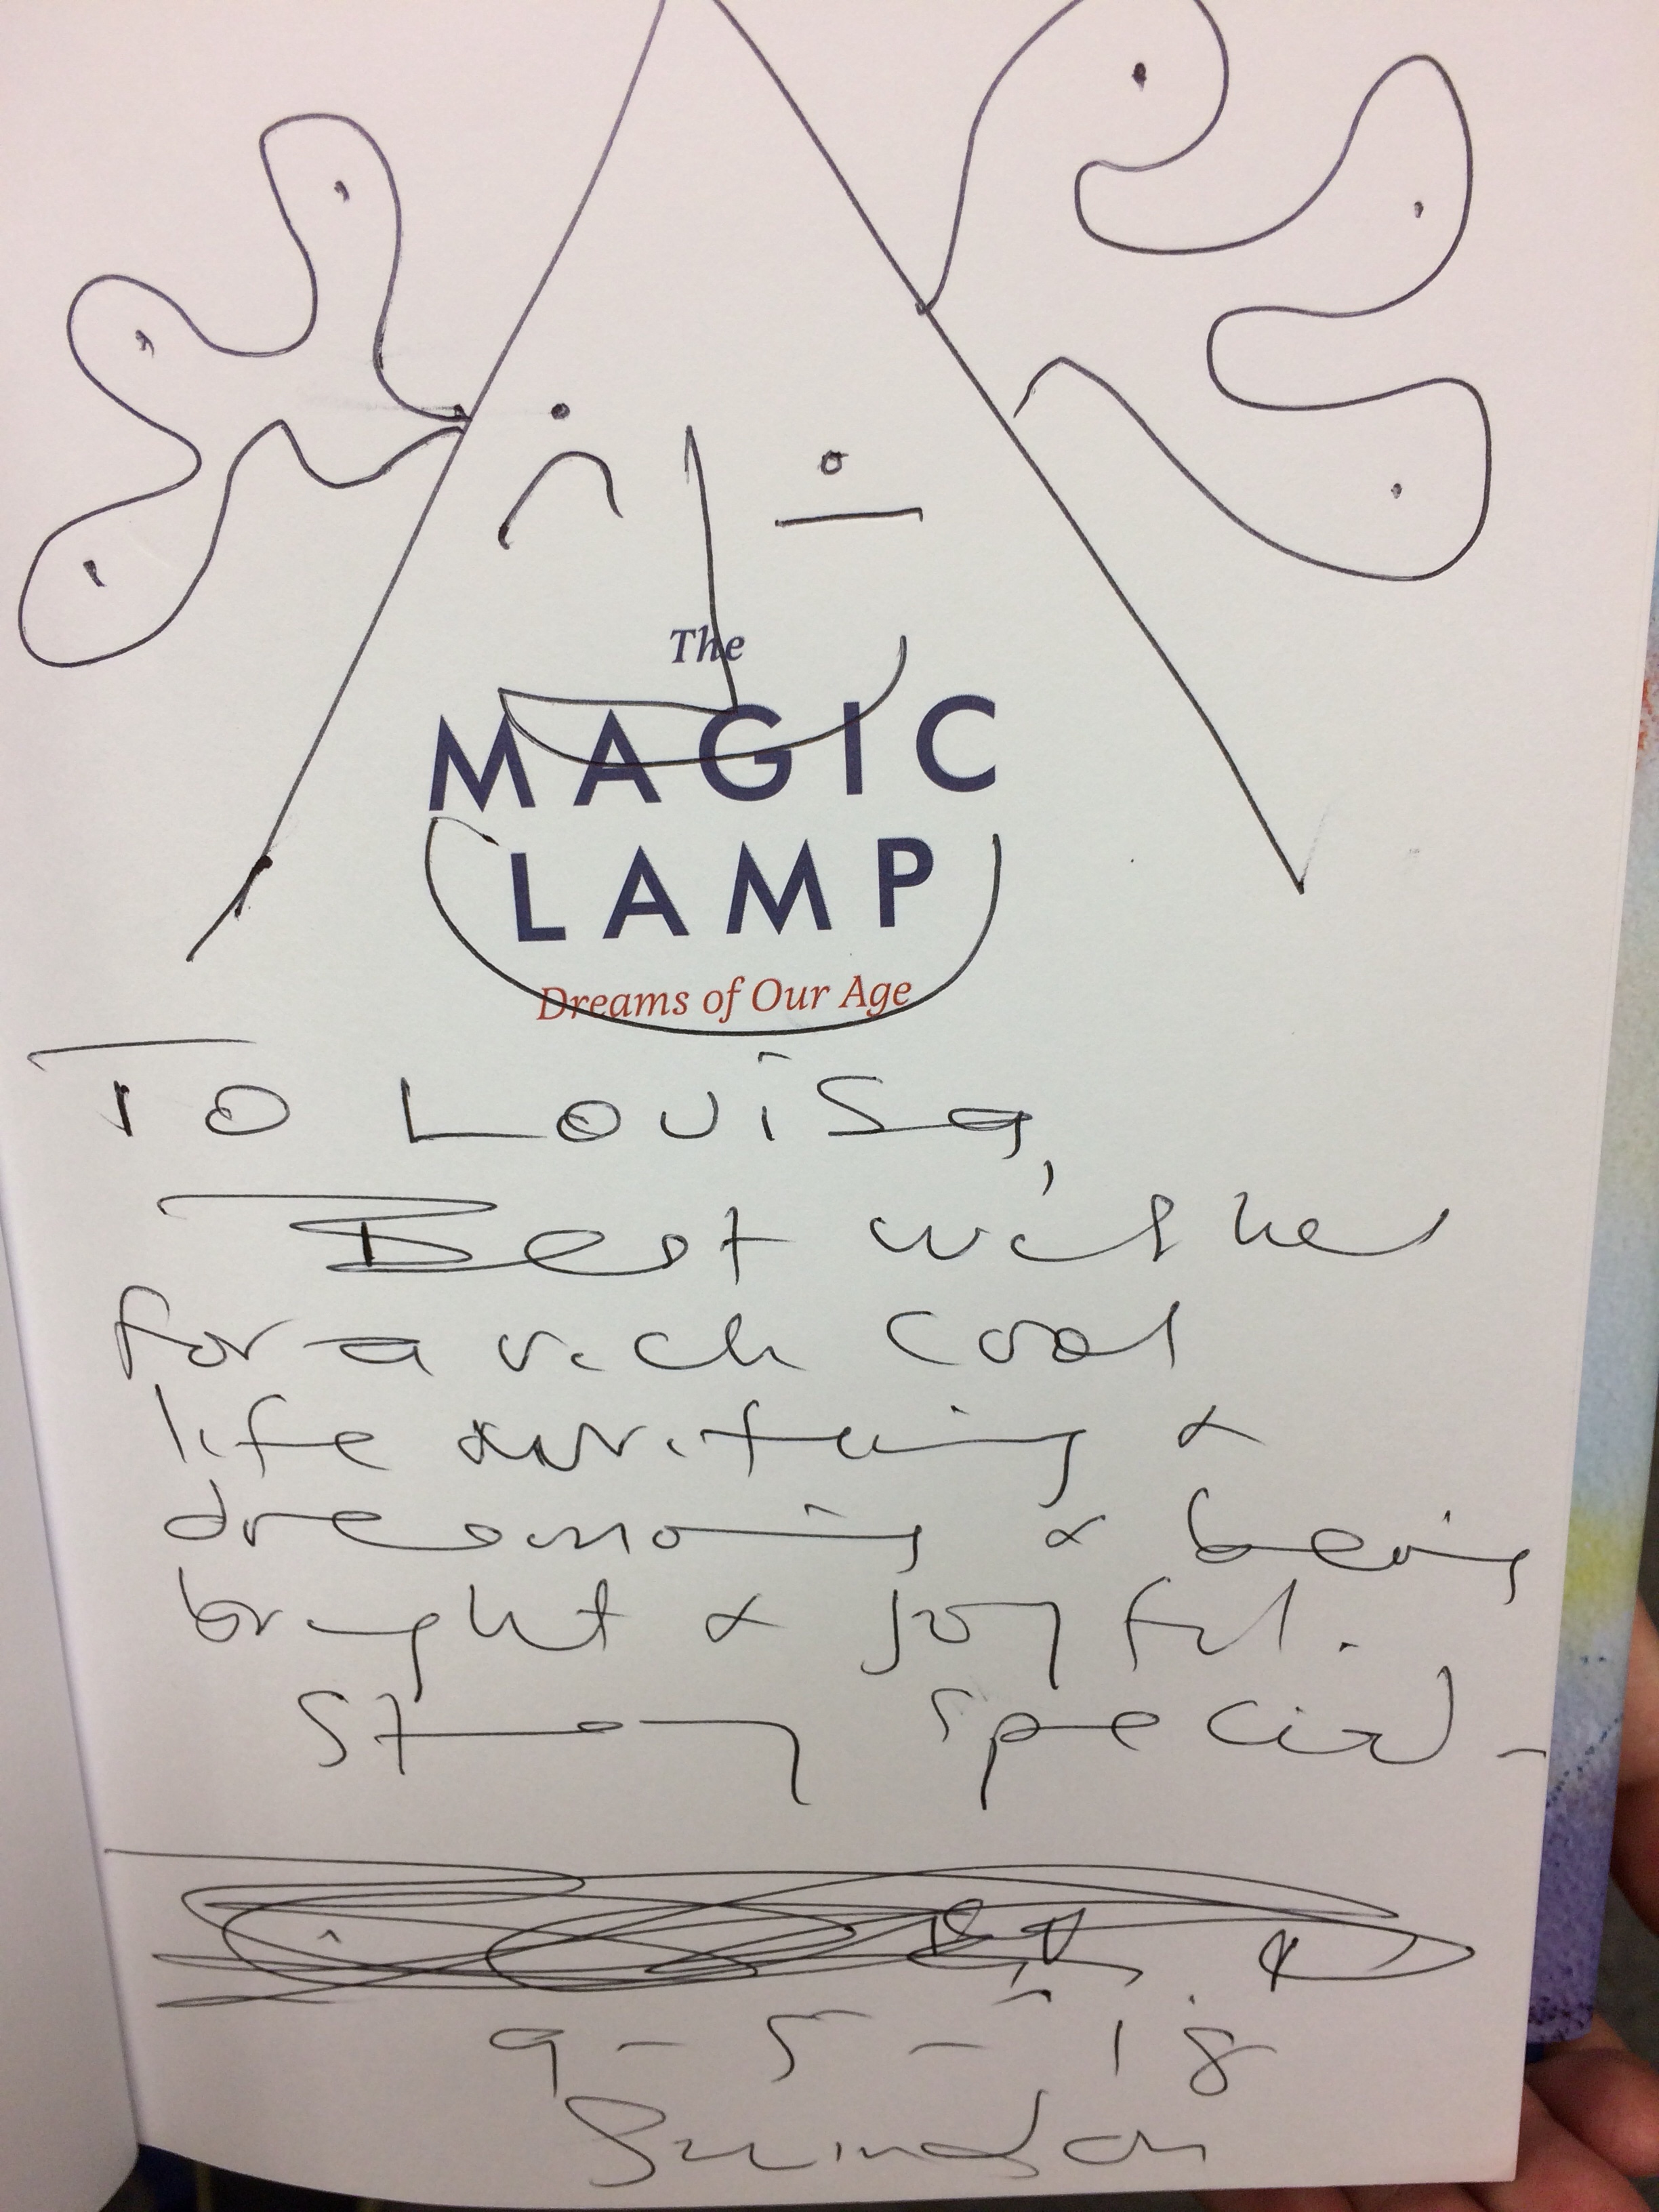 The
MAGIC
LAMP
Dreams of Our Age
To Louisa,
Best wishes
for a rich cool
life writing &
dreaming & being
bright & joyful.
Stay special -
9 - 5 - 18
Swindon